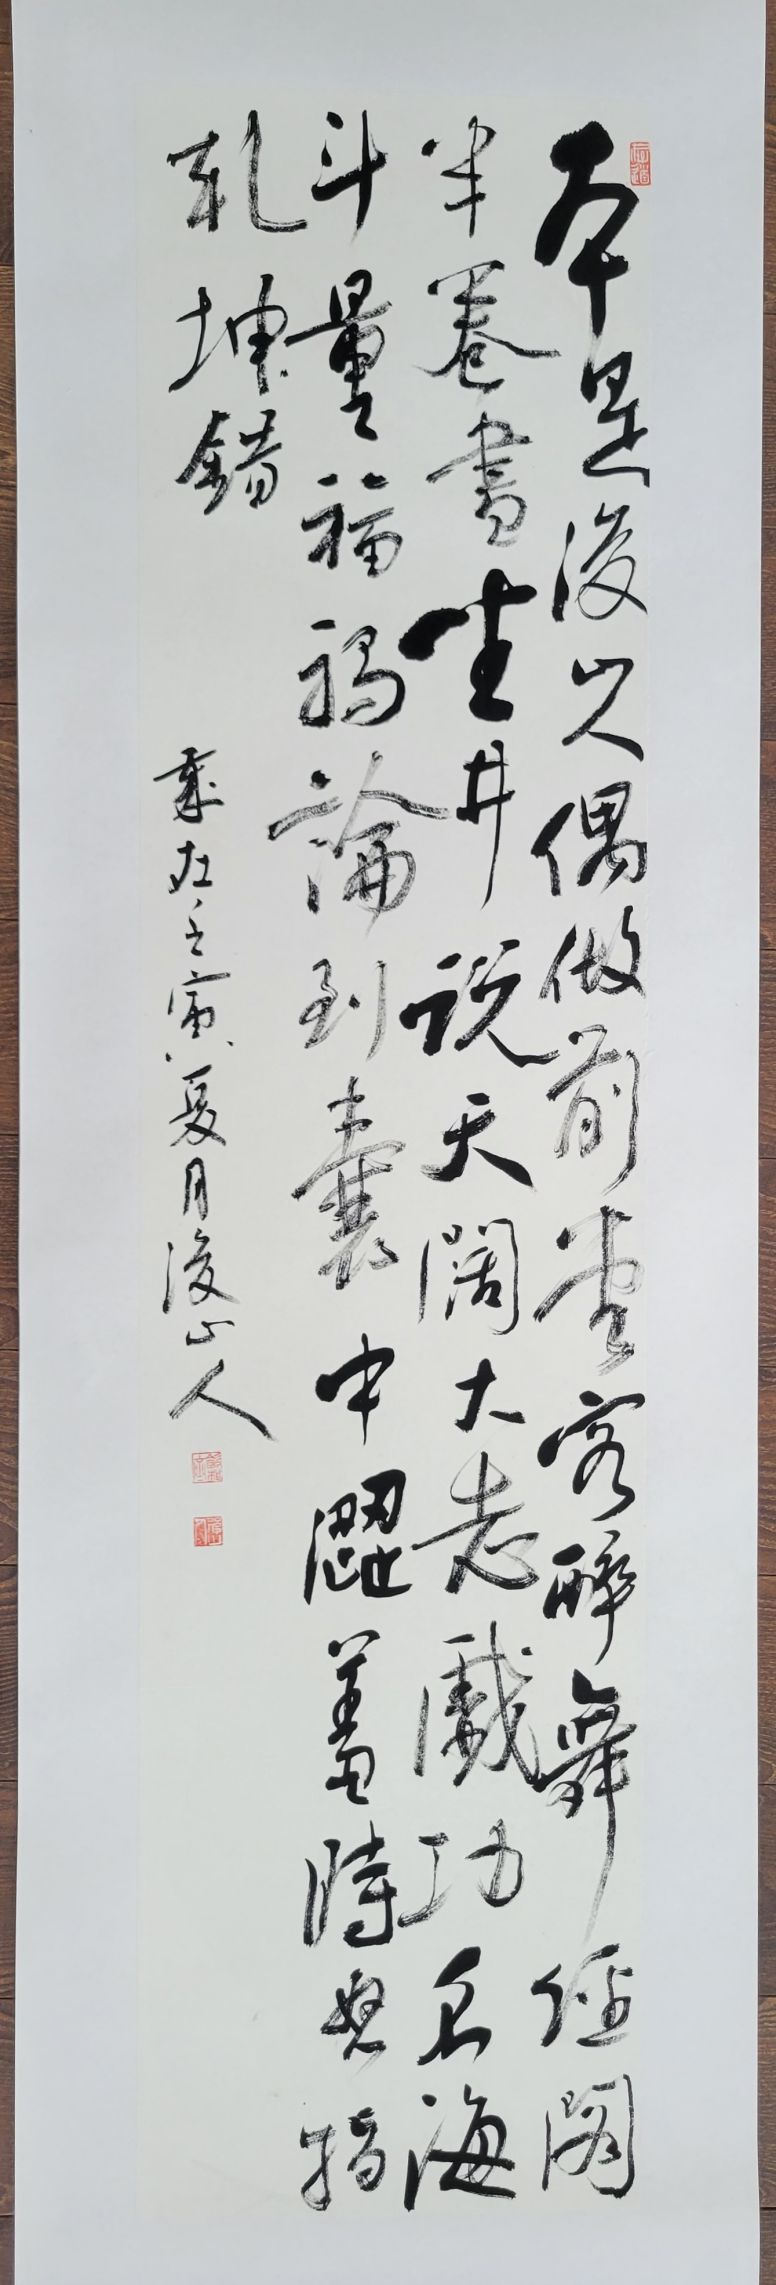 本是後山人偶做前堂客醉舞經閣
半卷書坐井説天闊大志戲功名海
斗量福禍論到囊中澀羞時怒指
乾坤錯
歲在壬寅夏月後山人